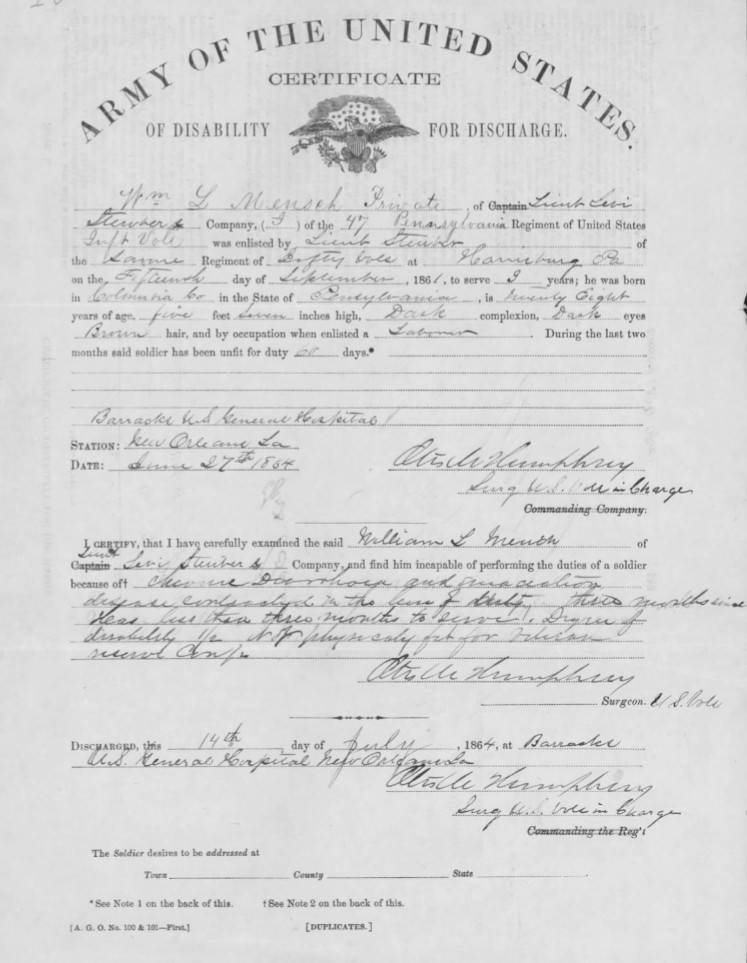 ARMY OF THE UNITED STATES.
CERTIFICATE
OF DISABILITY FOR DISCHARGE.
Wm L Mensch Private, of Captain Lieut Levi
Stuber s Company, (I) of the 47 Pennsylvania Regiment of United States
Inft Vols was enlisted by Lieut Steuber of
the Same Regiment of Infty Vols at Harrisburg Pa
on the Fifteenth day of September, 1861, to serve 3 years; he was born
in Columbia Co in the State of Pensylvania, is Twenty Eight
years of age, five feet Seven inches high, Dark complexion, Dark eyes
Brown hair, and by occupation when enlisted a Laborer. During the last two
months said soldier has been unfit for duty 60 days.*
Barracks U.S General Hospital
STATION: New Orleans La
DATE: June 27th 1864
Humphrey
Surg U.S. Vols in Charge
Commanding Company.
I CERTIFY, that I have carefully examined the said William L Mensch of
Lieut
Captain Levi Steuber s Company, and find him incapable of performing the duties of a soldier
because of† Chronic Diarrhoea and emaciation
disease contracted in the line of duty, three months since
Has less than three months to serve. Degree of
disability Not physicaly fit for Veteran
reserve Corps
Humphrey
Surgeon. U.S. Vols
DISCHARGED, this 14th day of July, 1864, at Barracks
U.S. General Hospital New Orleans La
Humphrey
Surg U.S. Vols in Charge
Commanding the Reg't
The Soldier desires to be addressed at
Town County State
*See Note 1 on the back of this. †See Note 2 on the back of this.
[A. G. O. No. 100 & 101—First.] [DUPLICATES.]